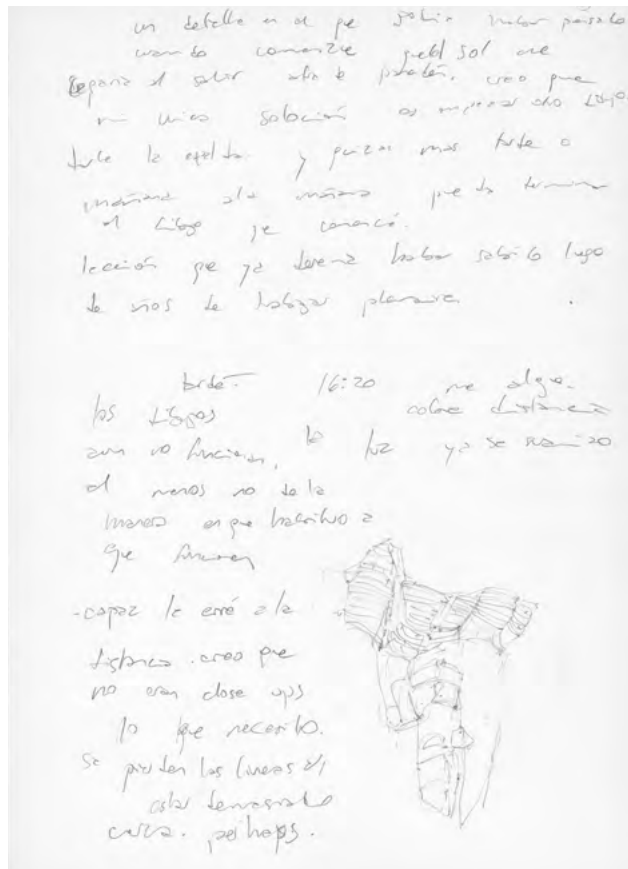 un detalle en el que debia haber pensado
cuando comenzé que el sol me
llegaria al salir
mi unica solución es empezar otro dibujo.
y quizas mas tarde o
mañana a la mañana pueda terminar
el dibujo que comencé.
lección que ya deberia haber sabido luego
de años de trabajar
tarde. 16:20 me alejo.
los dibujos cobre distancia
aun no funcionan, la luz ya se suavizo
al menos no de la
manera en que habitúo a
que funcionen
-capaz le erré a la
distancia. creo que
no eran close ups
lo que necesito.
se pierden las lineas al
estar demasiado
cerca. perhaps.